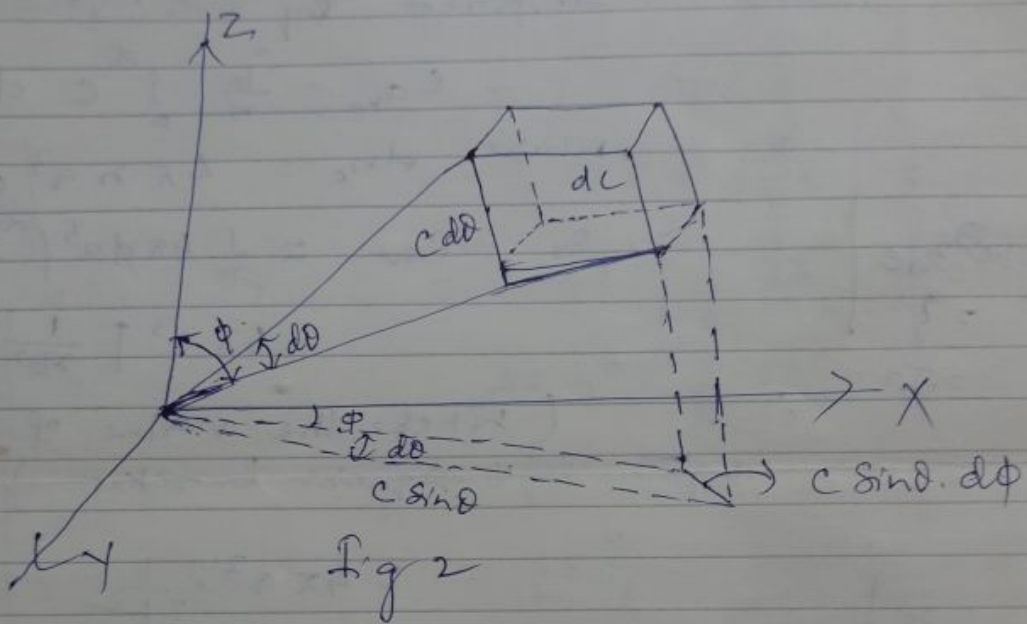 Z
dc
c dθ
φ
dθ
X
φ
dθ
c sinθ
c sinθ. dφ
Y
Fig 2